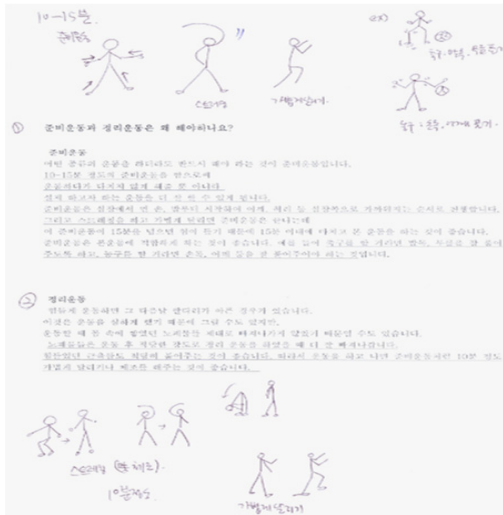 10-15분.
준비운동
스트레칭
가볍게 뛰기
ex)
축구 :
농구 : 손목, 어깨
① 준비운동과 정리운동은 왜 해야하나요?
준비운동
어떤 종류의 운동을 하더라도 반드시 해야 하는 것이 준비운동입니다.
10-15분 정도의 준비운동을 함으로써
운동하다가 다치지 않게 해줄 뿐 아니라
실제 하고자 하는 운동을 더 잘 할 수 있게 됩니다.
준비운동은 심장에서 먼 손, 발부터 시작하여 어깨, 허리 등 심장쪽으로 가까워지는 순서로 진행합니다.
그리고 스트레칭을 하고 가볍게 뛰면 준비운동은 끝나는데
이 준비운동이 15분을 넘으면 힘이 들기 때문에 15분 이내에 마치고 본 운동을 하는 것이 좋습니다.
준비운동은 본운동에 적합하게 하는 것이 좋습니다. 예를 들어 축구를 할 거라면 발목, 무릎을 잘 풀어
주도록 하고, 농구를 할 거라면 손목, 어깨 등을 잘 풀어주어야 하는 것입니다.
② 정리운동
힘들게 운동하면 그 다음날 팔다리가 아픈 경우가 있습니다.
이것은 운동을 심하게 했기 때문에 그럴 수도 있지만,
운동할 때 몸 속에 쌓였던 노폐물들이 제대로 빠져나가지 않았기 때문일 수도 있습니다.
노폐물들은 운동 후 적당한 강도로 정리 운동을 하였을 때 더 잘 빠져나갑니다.
힘들었던 근육들도 적당히 풀어주는 것이 좋습니다. 따라서 운동을 하고 나면 준비운동처럼 10분 정도
가볍게 달리기나 체조를 해주는 것이 좋습니다.
스트레칭 (맨체조).
10분정도
가볍게 달리기